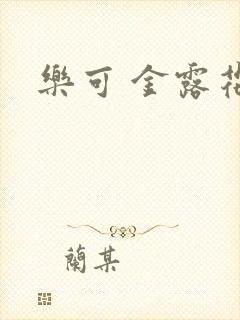 樂可 金露花
蘭某